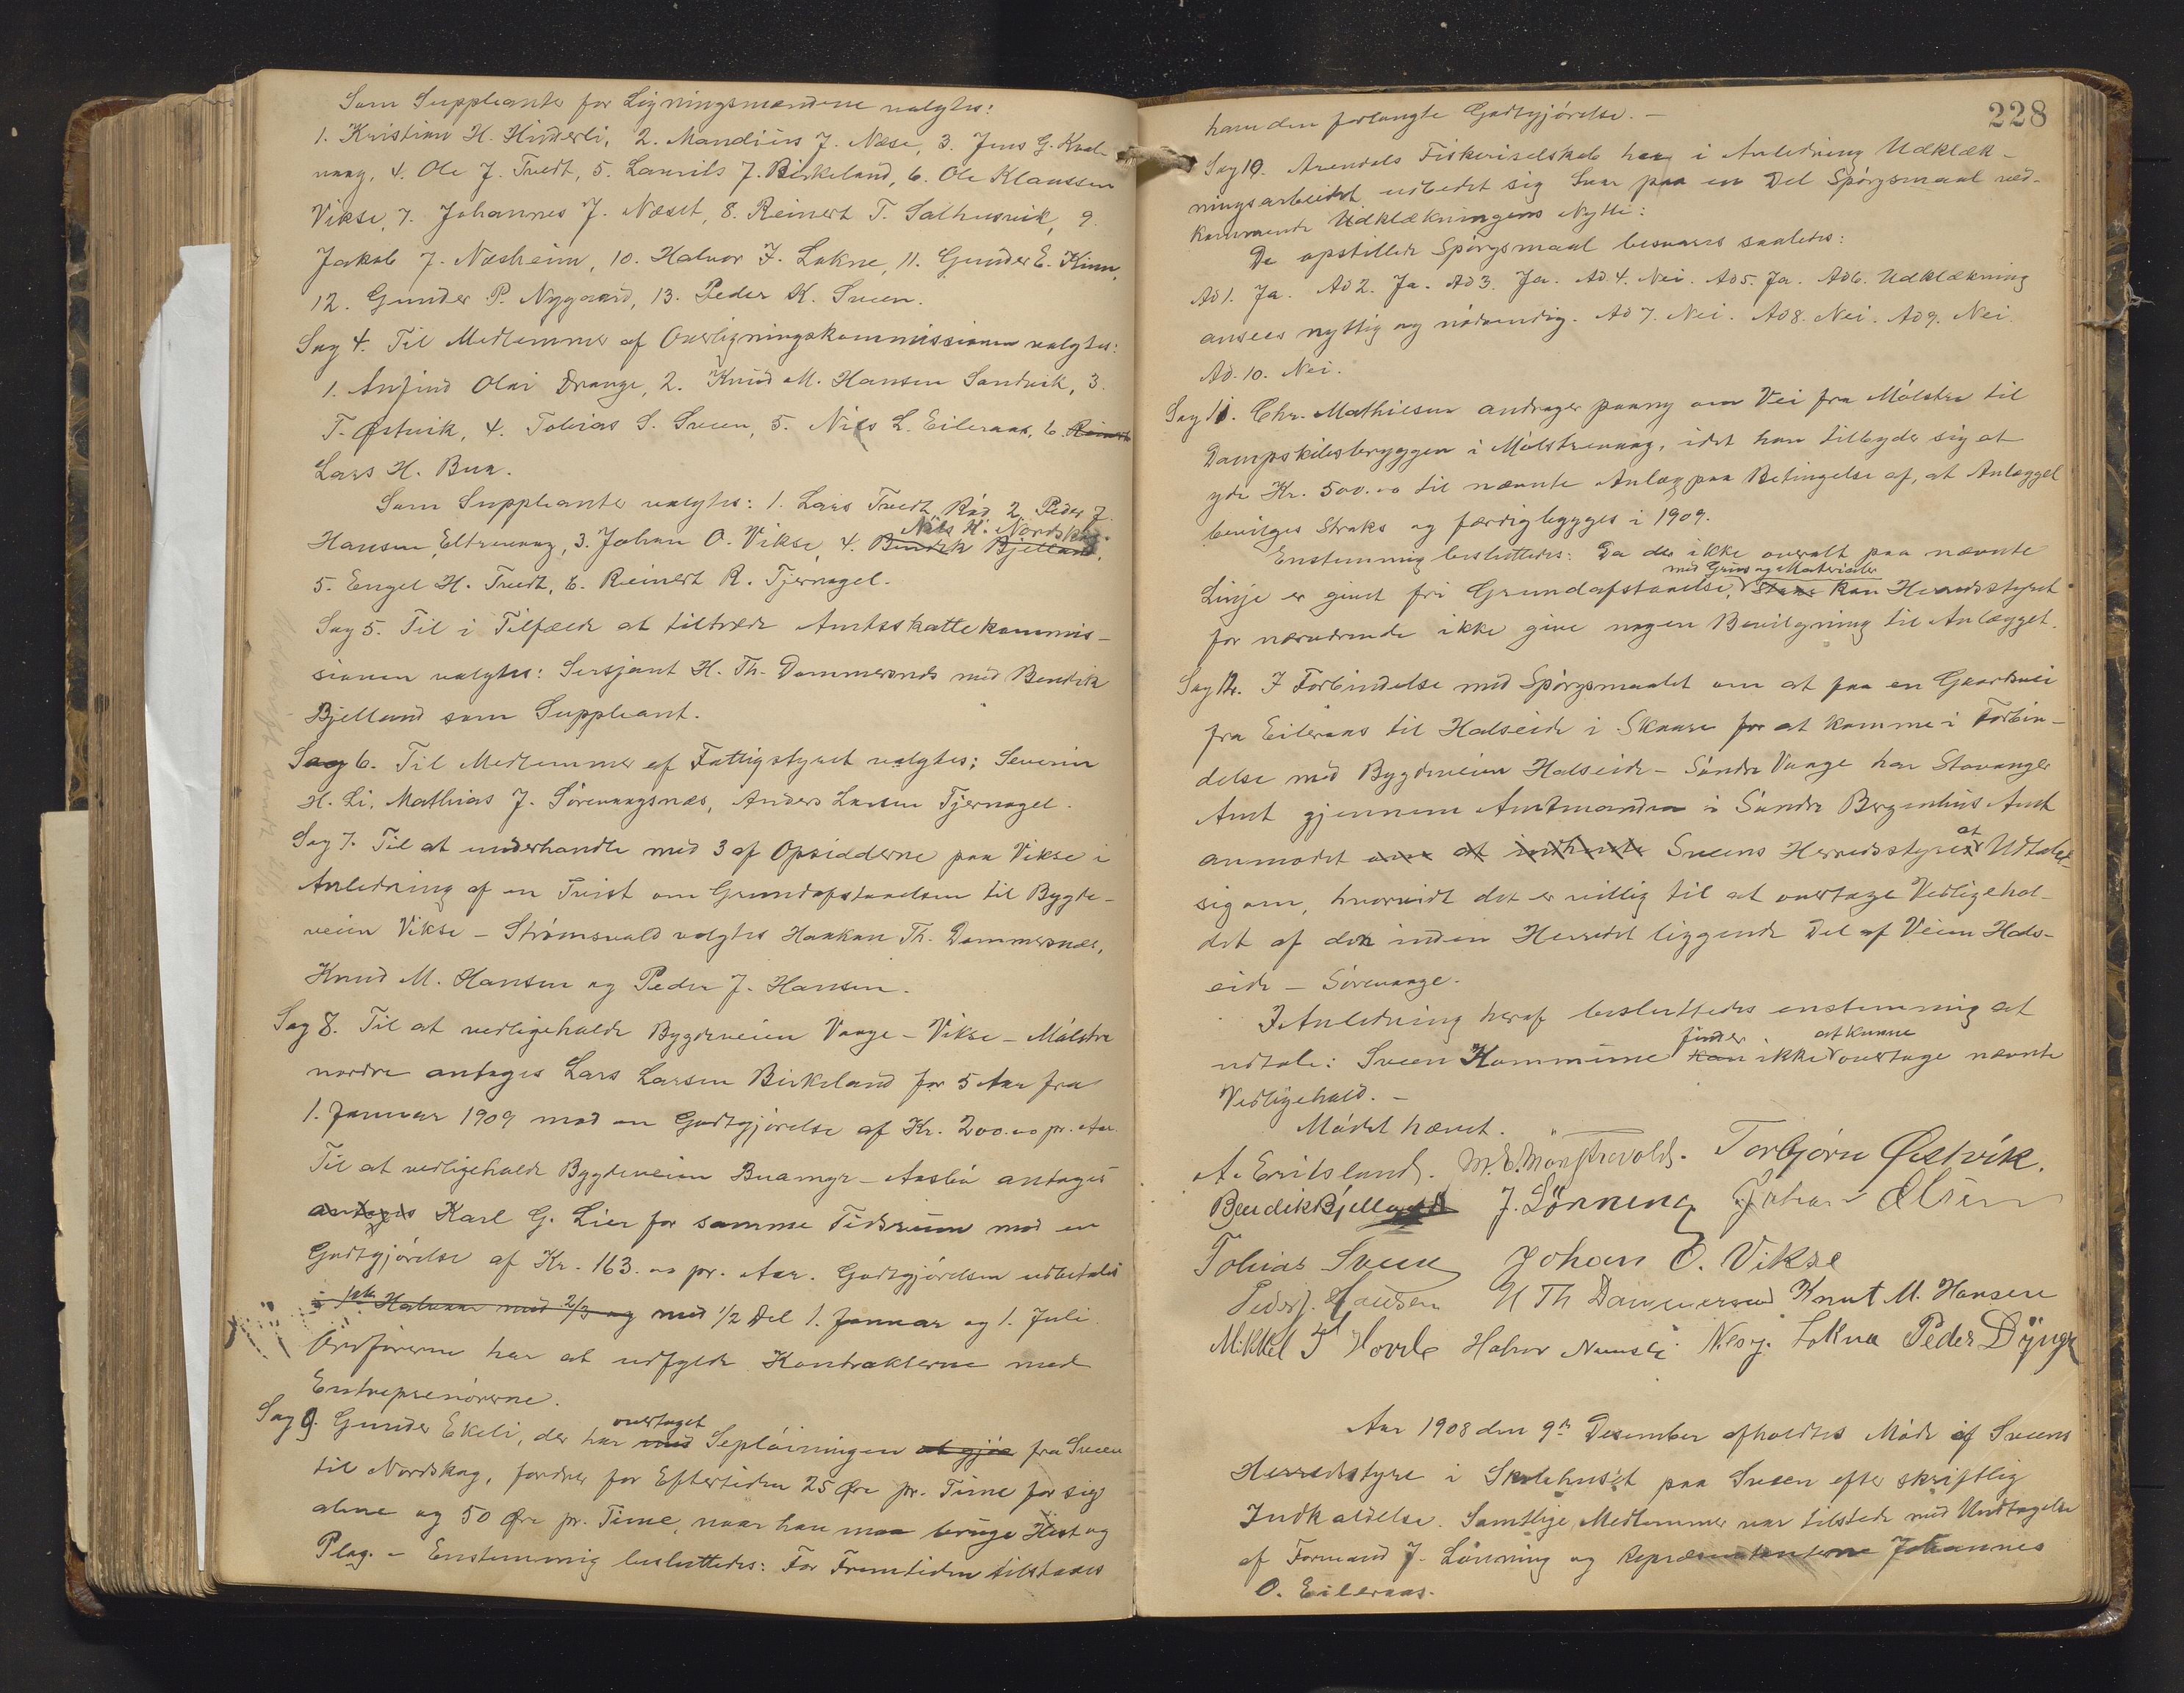 Som Suppleanter for Ligningsmændene valgtes:
1. Kristian H. Hinderli, 2. Mandius J. Næse, 3. Jens G. Kval-
vaag, 4. Ole J. Tvedt, 5. Laurits J. Birkeland, 6. Ole Klaussen
Vikse, 7. Johannes J. Næset, 8. Reinert T. Salhusvik, 9.
Jakob J. Næsheim, 10. Halvor F. Lokne, 11. Gunder E. Kinn,
12. Gunder P. Nygaard, 13. Peder K. Sveen.
Sag 4. Til Medlemmer af Overligningskommissionen valgtes:
1. Anfind Olai Drange, 2. Knud M. Hansen Sandvik, 3.
T. Østvik, 4. Tobias S. Sveen, 5. Nils L. Eileraas, 6. Reinert
Lars H. Bua.
Som Suppleanter valgtes: 1. Lars Tvedt, Rød, 2. Peder J.
Nils K. Nordskog
Hansen, Eltrevaag, 3. Johan O. Vikse, 4. Bendik Bjelland,
5. Engel H. Tvedt, 6. Reinert R. Tjernagel.
Sag 5. Til i Tilfælde at tiltræde Amtsskattekommis-
sionen valgtes: Sersjant H. Th. Dommersnes med Bendik
Bjelland som Suppleant.
Sag 6. Til Medlemmer af Fattigstyret valgtes: Severin
H. Li, Mathias J. Sørevaagsnæs, Anders Larsen Tjernagel.
Sag 7. Til at underhandle med 3 af Opsidderne paa Vikse i
Anledning af en Tvist om Grundafstaaelsen til Bygde-
veien Vikse - Strømsvold valgtes Haakon Th. Dommersnæs,
Knud M. Hansen og Peder J. Hansen.
Sag 8. Til at vedligeholde Bygdeveien Vaage - Vikse - Mølstre
nordre antages Lars Larsen Birkeland for 5 Aar fra
1. Januar 1909 mod en Godtgjørelse af Kr. 200.00 pr. Aar.
Til at vedligeholde Bygdeveien Buamyr - Aasbu antages
antages Karl G. Lier for samme Tidsrum mod en
Godtgjørelse af Kr. 163.00 pr. Aar. Godtgjørelsen udbetales
i hvert Halvaar med 2/3 og med 1/2 Del 1. Januar og 1. Juli.
Ordføreren har at udfylde Kontrakterne med
Entreprenørerne.
overtaget
Sag 9. Gunder Ekeli, der har med Sepløiningen at gjøre fra Sveen
til Nordskog, fordrer for Eftertiden 25 Øre pr. Time for sig
alene og 50 Øre pr. Time, naar han maa bruge Hest og
Plog. - Enstemmig besluttedes: For Fremtiden tilstaaes
228
ham den forlangte Godtgjørelse. -
Sag 10. Arendals Fiskeriselskab har i Anledning Udklæk-
ningsarbeidet udbedet sig Svar paa en Del Spørgsmaal ved-
kommende Udklækningens Nytte:
De opstillede Spørgsmaal besvares saaledes:
Ad 1. Ja. Ad 2. Ja. Ad 3. Ja. Ad 4. Nei. Ad 5. Ja. Ad 6. Udklækning
ansees nyttig og nødvendig. Ad 7. Nei. Ad 8. Nei. Ad 9. Nei.
Ad. 10. Nei.
Sag 11. Chr. Mathiesen andrager paany om Vei fra Mølstre til
Dampskibsbryggen i Mølstrevaag, idet han tilbyder sig at
yde Kr. 500.00 til nævnte Anlæg paa Betingelse af, at Anlægget
bevilges straks og færdigbygges i 1909.
Enstemmig besluttedes: Da der ikke overalt paa nævnte
med Grus og Materialer
Linje er givet fri Grundafstaaelse, kan Herredsstyret
for nærværende ikke give nogen Bevilgning til Anlægget.
Sag 12. I Forbindelse med Spørgsmaalet om at faa en Gaardsvei
fra Eileraas til Halseide i Skaare for at komme i Forbin-
delse med Bygdeveien Halseide - Søndre Vaage har Stavanger
Amt gjennem Amtmanden i Søndre Bergenhus Amt
at
anmodet om at indhente Sveens Herredsstyre Udtale
sig om, hvorvidt det er villig til at overtage Vedligehol-
det af den inden Herredet liggende Del af Veien Hals-
eide - Sørevaage.
I Anledning heraf besluttedes enstemmig at
finder at kunne
udtale: Sveen Kommune kan ikke overtage nævnte
Vedligehold. -
Mødet hævet.
A. Eritsland. Torbjørn Østvik.
Bendik Bjelland J. Lønning Johan Olsen
Tobias Sveen Johan O. Vikse
Peder J. Hansen H Th Dommersnes Knut M. Hansen
Mikkel T Hovda Halvor Nils J. Lokna Peder Djupe
Aar 1908 den 9de Desember afholdtes Møde af Sveens
Herredsstyre i Skolehuset paa Sveen efter skriftlig
Indkaldelse. Samtlige Medlemmer var tilstede med Undtagelse
af Formand J. Lønning og Repræsentanterne Johannes
O. Eileraas.